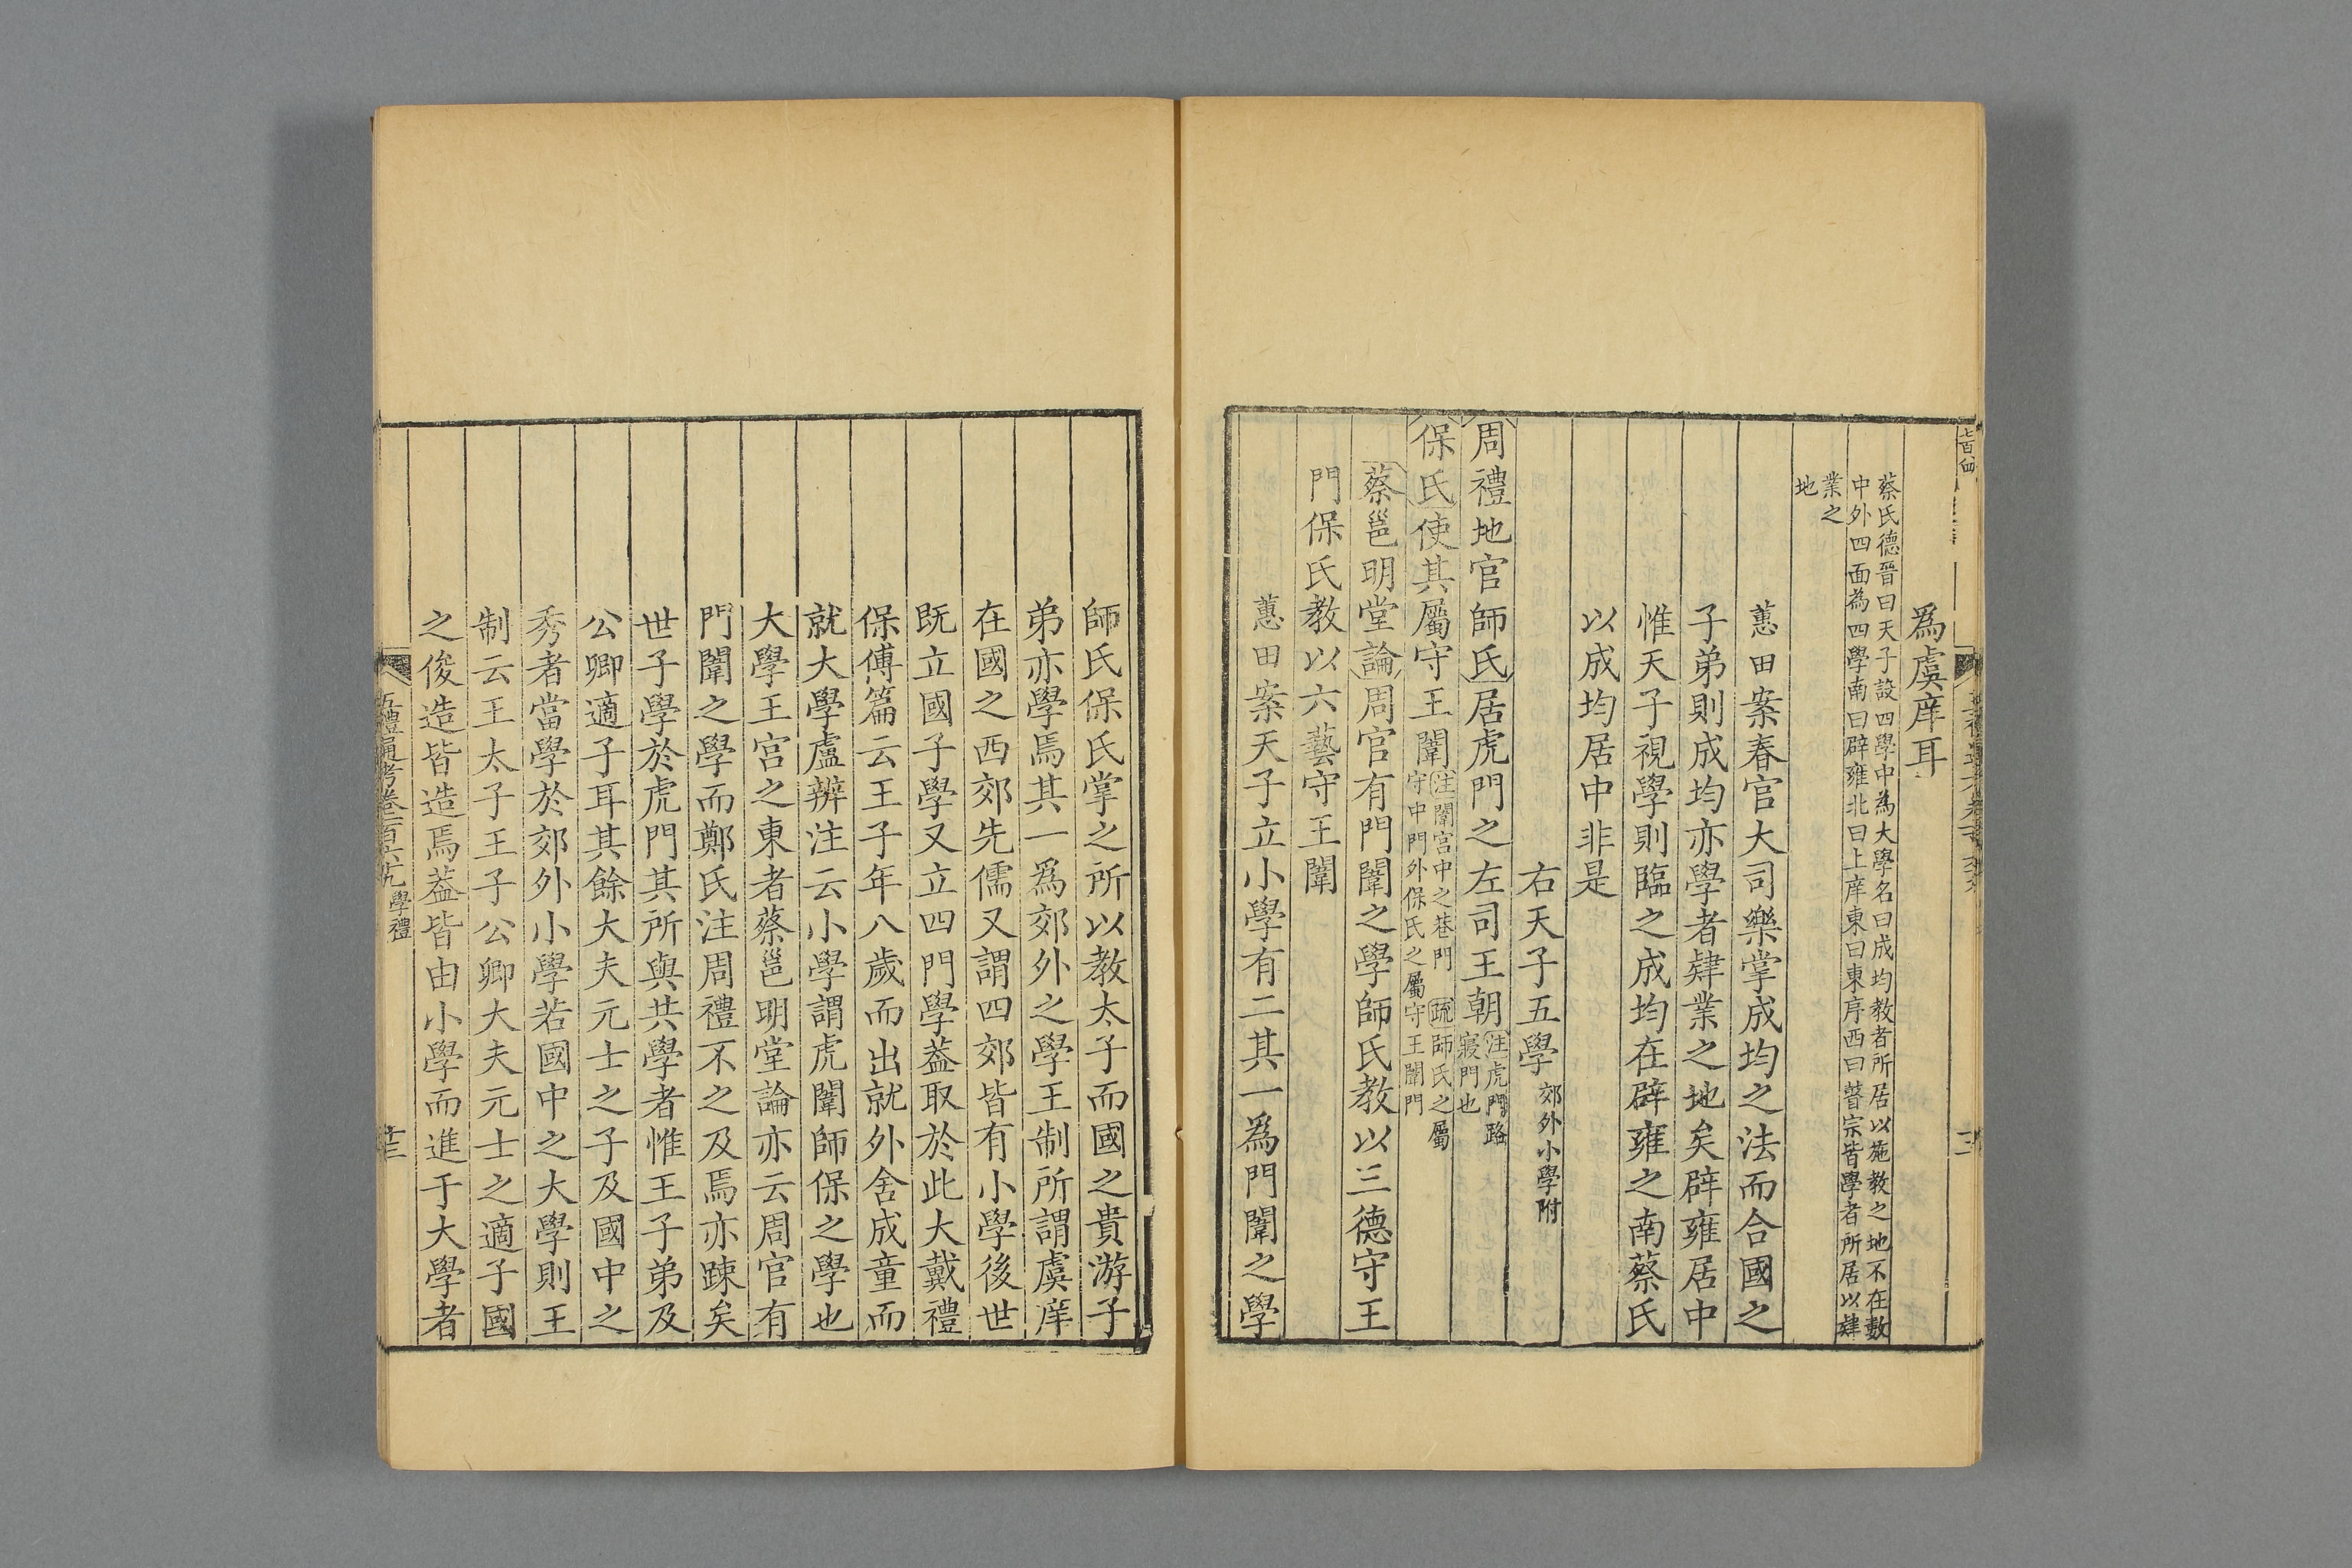 爲虞庠耳
蔡氏德晉曰天子設四學中為大學名曰成均教者所居以施教之地不在數
中外四面為四學南曰辟雍北曰上庠東曰東序西曰瞽宗皆學者所居以肄
業之
地
蕙田案春官大司樂掌成均之法而合國之
子弟則成均亦學者肄業之地矣辟雍居中
惟天子視學則臨之成均在辟雍之南蔡氏
以成均居中非是
右天子五學郊外小學附
周禮地官師氏居虎門之左司王朝注虎門路
寢門也
保氏使其屬守王闈注闈宮中之巷門 疏師氏之屬
守中門外保氏之屬守王闈門
蔡邕明堂論周官有門闈之學師氏教以三德守王
門保氏教以六藝守王闈
蕙田案天子立小學有二其一爲門闈之學
師氏保氏掌之所以教太子而國之貴游子
弟亦學焉其一爲郊外之學王制所謂虞庠
在國之西郊先儒又謂四郊皆有小學後世
既立國子學又立四門學葢取於此大戴禮
保傅篇云王子年八歲而出就外舍成童而
就大學盧辨注云小學謂虎闈師保之學也
大學王宮之東者蔡邕明堂論亦云周官有
門闈之學而鄭氏注周禮不之及焉亦踈矣
世子學於虎門其所與共學者惟王子弟及
公卿適子耳其餘大夫元士之子及國中之
秀者當學於郊外小學若國中之大學則王
制云王太子王子公卿大夫元士之適子國
之俊造皆造焉葢皆由小學而進于大學者
五禮通考卷一百六十九 學禮
十三